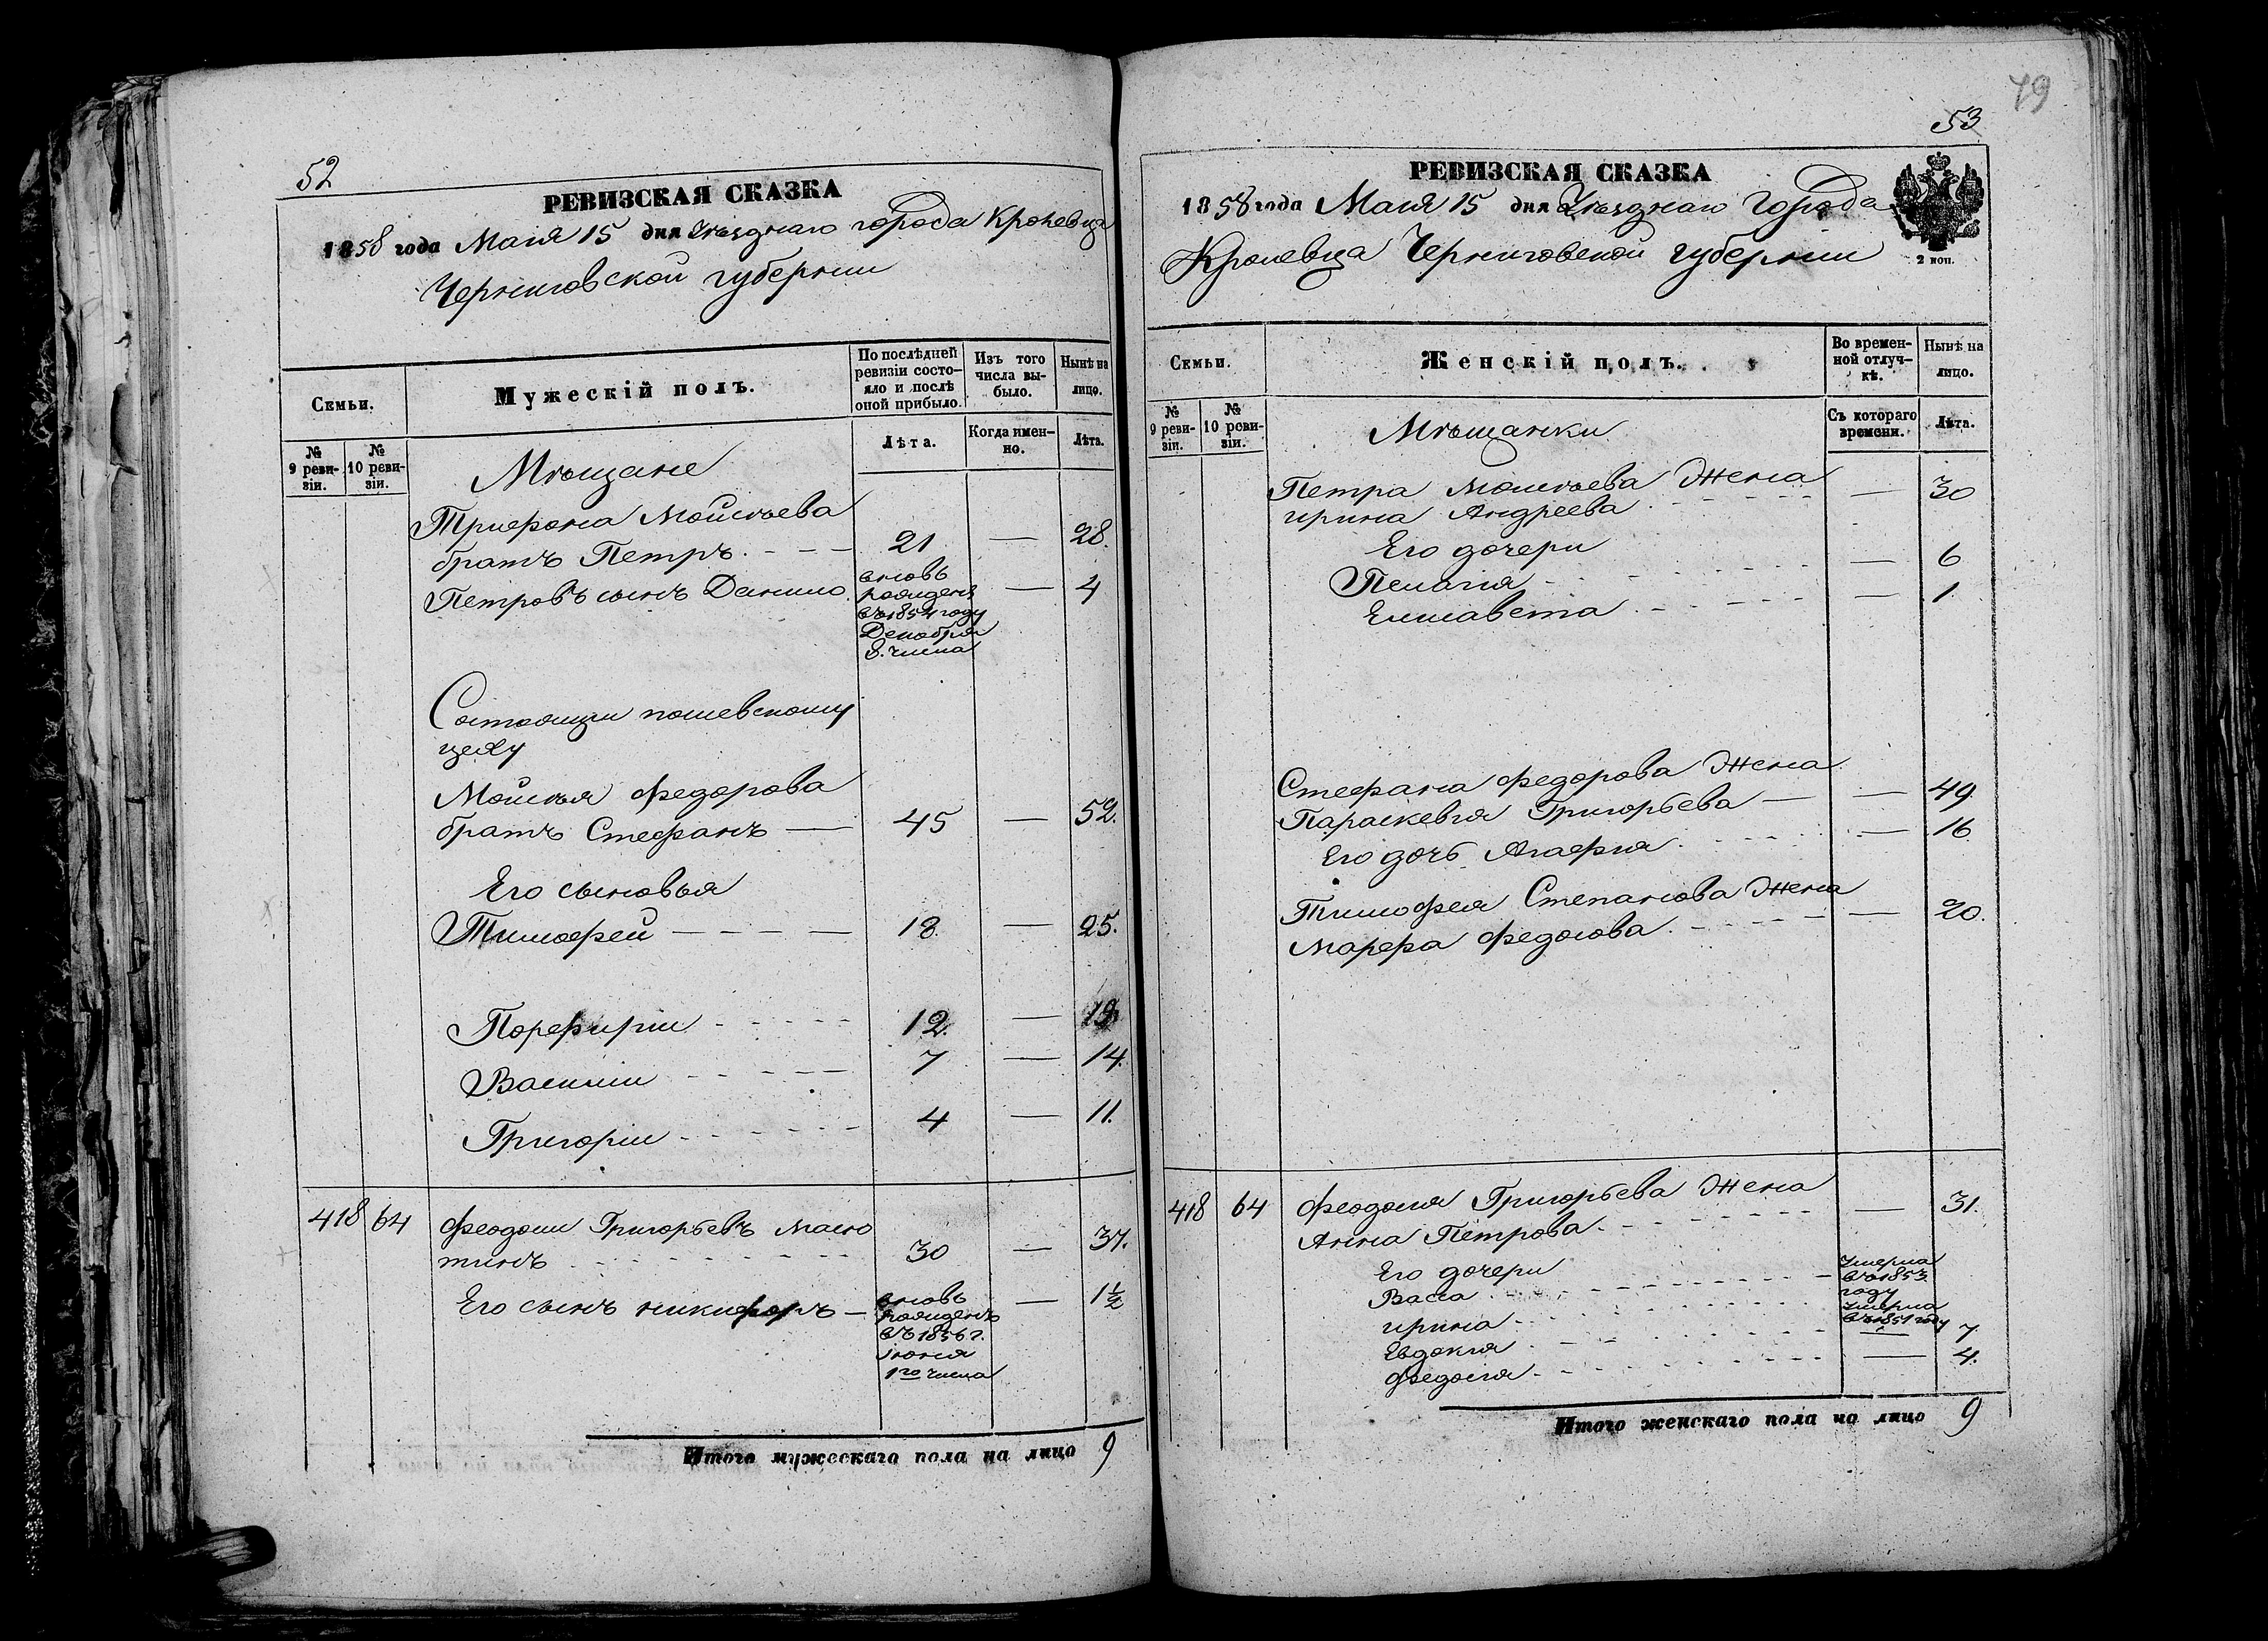 52
РЕВИЗСКАЯ СКАЗКА
1858 года Маія 15 дня Уѣзднаго города Кролевца
Черниговской губерніи
Семьи.
Мужескій полъ.
По послѣдней ревизіи состояло и послѣ оной прибыло.
Изъ того числа выбыло.
Нынѣ на лицо.
№ 9 ревизіи.
№ 10 ревизіи.
Лѣта.
Когда именно.
Лѣта.
Мѣщане
Трифона Мойсѣева
братъ Петръ 21 — 28.
Петровъ сынъ Данило вновь рожденъ въ 1854 году Декабря 8. числа — 4
Состоящии
цеху
Мойсѣя Федорова
братъ Стефанъ — 45 — 52.
Его сыновья
Тимофей 18. — 25.
Порфирии 12. — 19.
Василии 7 — 14.
Григории 4 — 11.
418 64 Феодоси Григорьевъ Масю
тинъ 30 — 37.
Его сынъ никифоръ — вновь рожденъ въ 1856 г. Іюня 1го числа — 1½
Итого мужескаго пола на лицо 9
79
53
РЕВИЗСКАЯ СКАЗКА
1858 года Маія 15 дня Уѣзднаго Города
Кролевца Черниговской губерніи
2 коп.
Семьи.
Женскій полъ.
Во временной отлучкѣ.
Нынѣ на лицо.
№ 9 ревизіи.
№ 10 ревизіи.
Съ котораго времени.
Лѣта.
Мѣщанки
Петра Мойсѣева Жена
ирина Андреева — 30
Его дочери
Пелагія — 6
Елисавета — 1.
Стефана Федорова Жена
Параскевія Григорьева — — 49.
Его дочь Агафия — 16.
Тимофея Степанова Жена
Марфа Федосова — 20.
418 64 Феодосія Григорьева Жена
Анна Петрова — 31.
Его дочери
Васса умерла въ 1853 году
ирина умерла въ 1851 году
Евдокия — 7.
Федосія — 4.
Итого женскаго пола на лицо 9